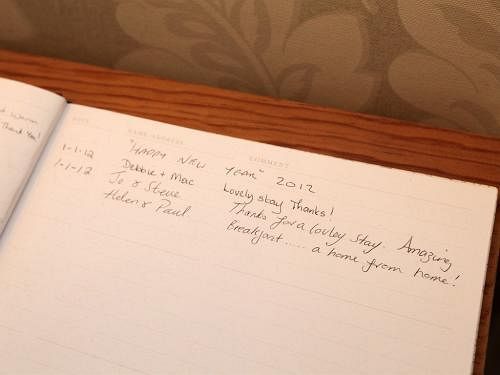 Thank You!
DATE NAME/ADDRESS COMMENT
"HAPPY NEW YEAR" 2012
1-1-12 Debbie + Mac Lovely stay Thanks!
1-1-12 Jo & Steve Thanks for a lovley stay. Amazing
Helen & Paul Breakfast..... a home from home!